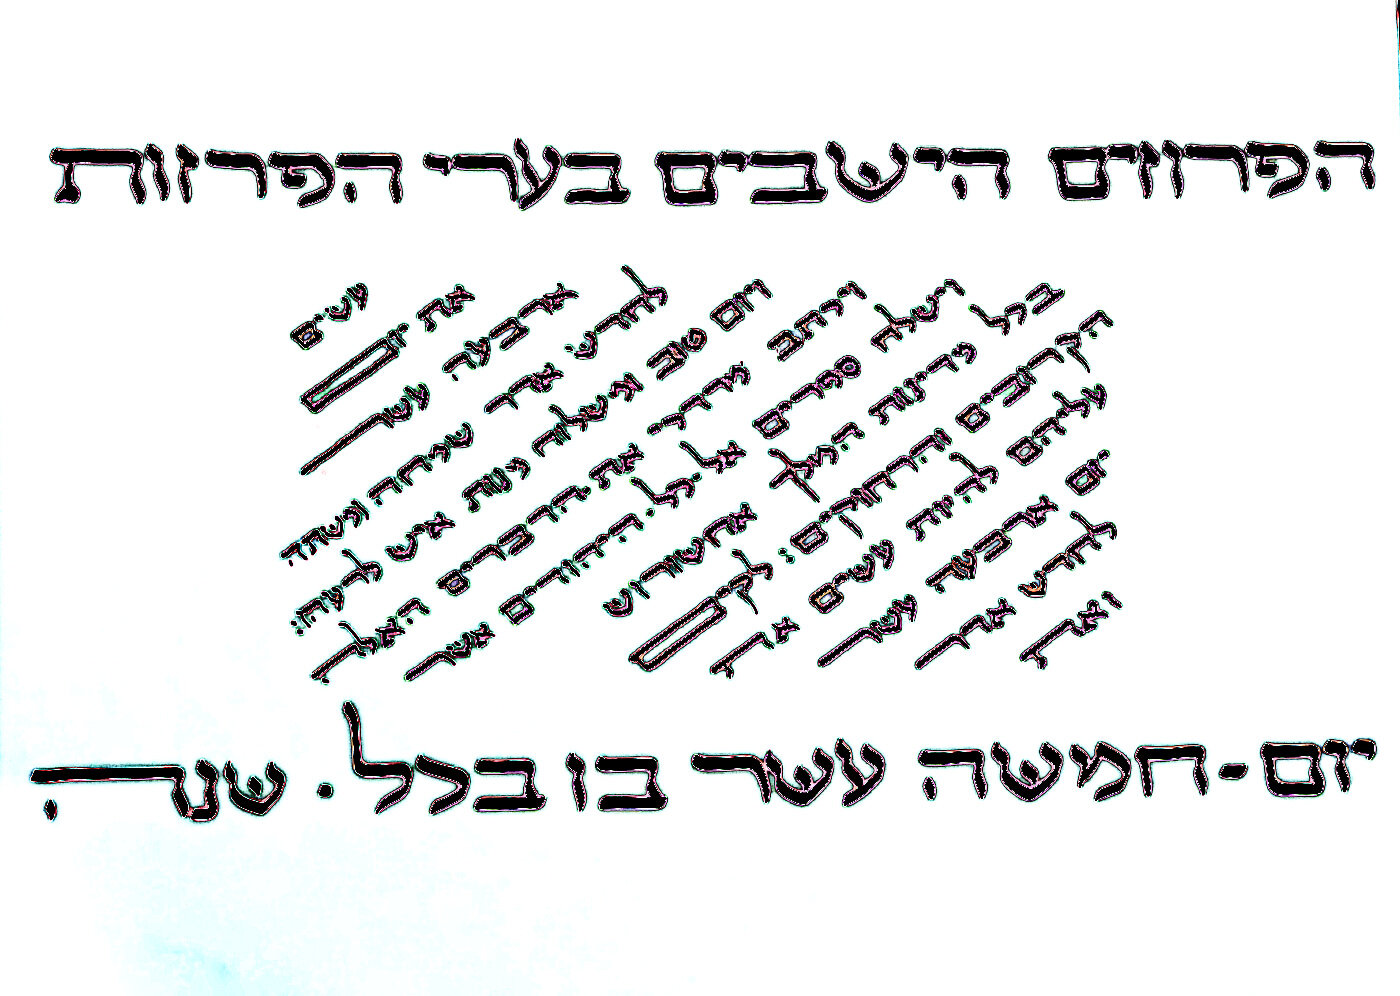 הפרוזים הישבים בערי הפרזות
עשים
את יום
ארבעה עשר
לחדש אדר שמחה ומשתה
ויום טוב ומשלוח מנות איש לרעהו:
ויכתב מרדכי את הדברים האלה
וישלח ספרים אל כל היהודים אשר
בכל מדינות המלך אחשורוש
הקרובים והרחוקים: לקים
עליהם להיות עשים את
יום ארבעה עשר
לחדש אדר
ואת
יום-חמשה עשר בו בכל. שנה